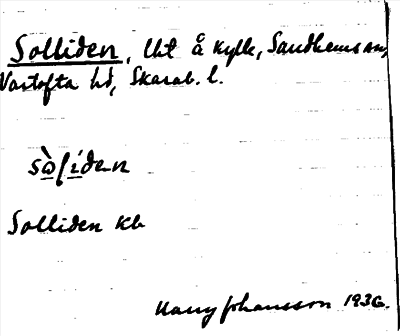 Solliden, lht å Kylle, Sandhems sn,
Vartofta hd, Skarab. l.
sò̠lí̠dan
Solliden kb
Harry Johansson 1936.